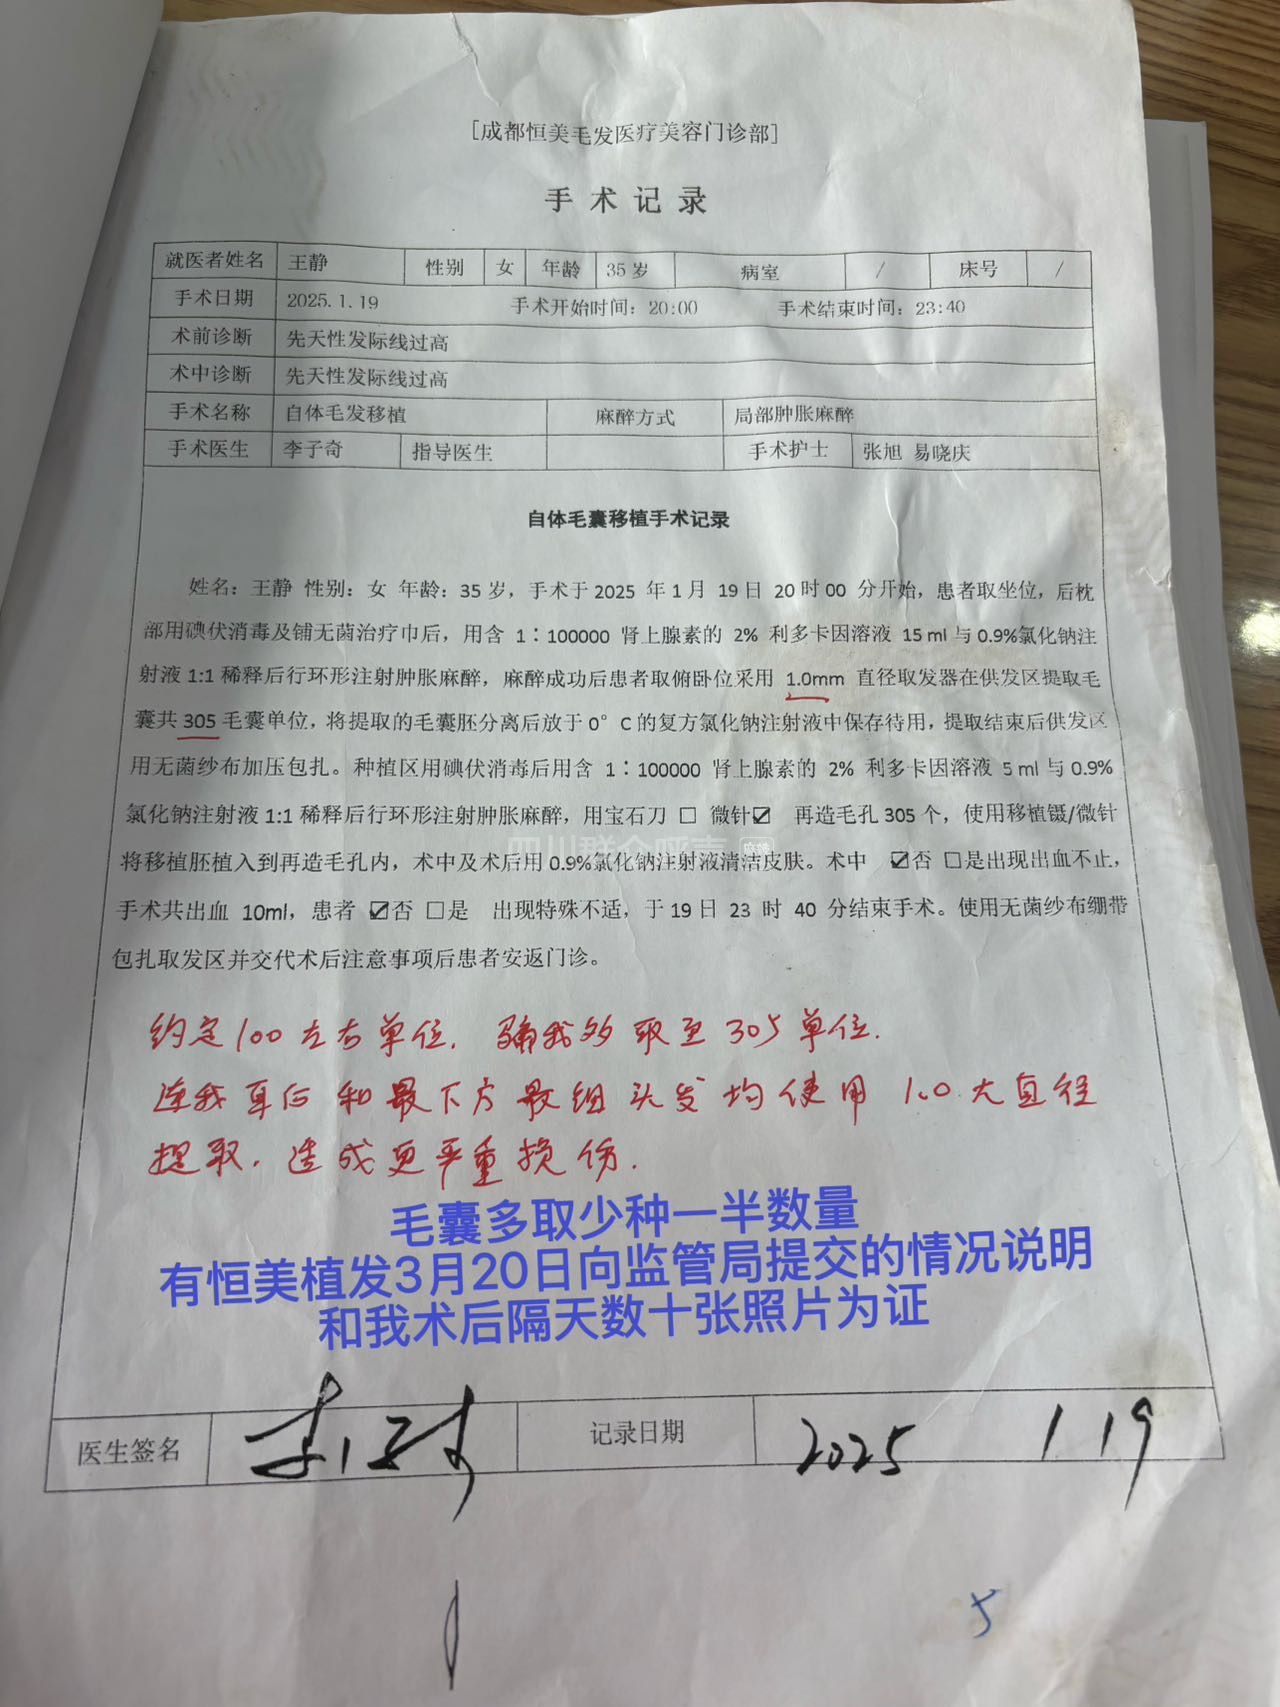 [成都恒美毛发医疗美容门诊部]
手术记录
就医者姓名 王静 性别 女 年龄 35岁 病室 / 床号 /
手术日期 2025.1.19 手术开始时间：20:00 手术结束时间：23:40
术前诊断 先天性发际线过高
术中诊断 先天性发际线过高
手术名称 自体毛发移植 麻醉方式 局部肿胀麻醉
手术医生 李子奇 指导医生 手术护士 张旭 易晓庆
自体毛囊移植手术记录
姓名：王静 性别：女 年龄：35岁，手术于2025 年1月 19日 20时00 分开始，患者取坐位，后枕
部用碘伏消毒及铺无菌治疗巾后，用含 1：100000 肾上腺素的 2% 利多卡因溶液 15ml与0.9%氯化钠注
射液1:1稀释后行环形注射肿胀麻醉，麻醉成功后患者取俯卧位采用 1.0mm 直径取发器在供发区提取毛
囊共305毛囊单位，将提取的毛囊胚分离后放于0°C的复方氯化钠注射液中保存待用，提取结束后供发区
用无菌纱布加压包扎。种植区用碘伏消毒后用含 1：100000 肾上腺素的 2% 利多卡因溶液 5ml与0.9%
氯化钠注射液1:1稀释后行环形注射肿胀麻醉，用宝石刀 □ 微针☑ 再造毛孔305个，使用移植镊/微针
将移植胚植入到再造毛孔内，术中及术后用0.9%氯化钠注射液清洁皮肤。术中 ☑否 □是出现出血不止，
手术共出血 10ml，患者 ☑否 □是 出现特殊不适，于19日 23 时 40 分结束手术。使用无菌纱布绷带
包扎取发区并交代术后注意事项后患者安返门诊。
四川群众呼声 麻辣
约定100左右单位，骗我多取至305单位.
连我耳后和最下方最细头发均使用1.0大直径
提取，造成更严重损伤.
毛囊多取少种一半数量
有恒美植发3月20日向监管局提交的情况说明
和我术后隔天数十张照片为证
医生签名 记录日期 2025 1 19
5